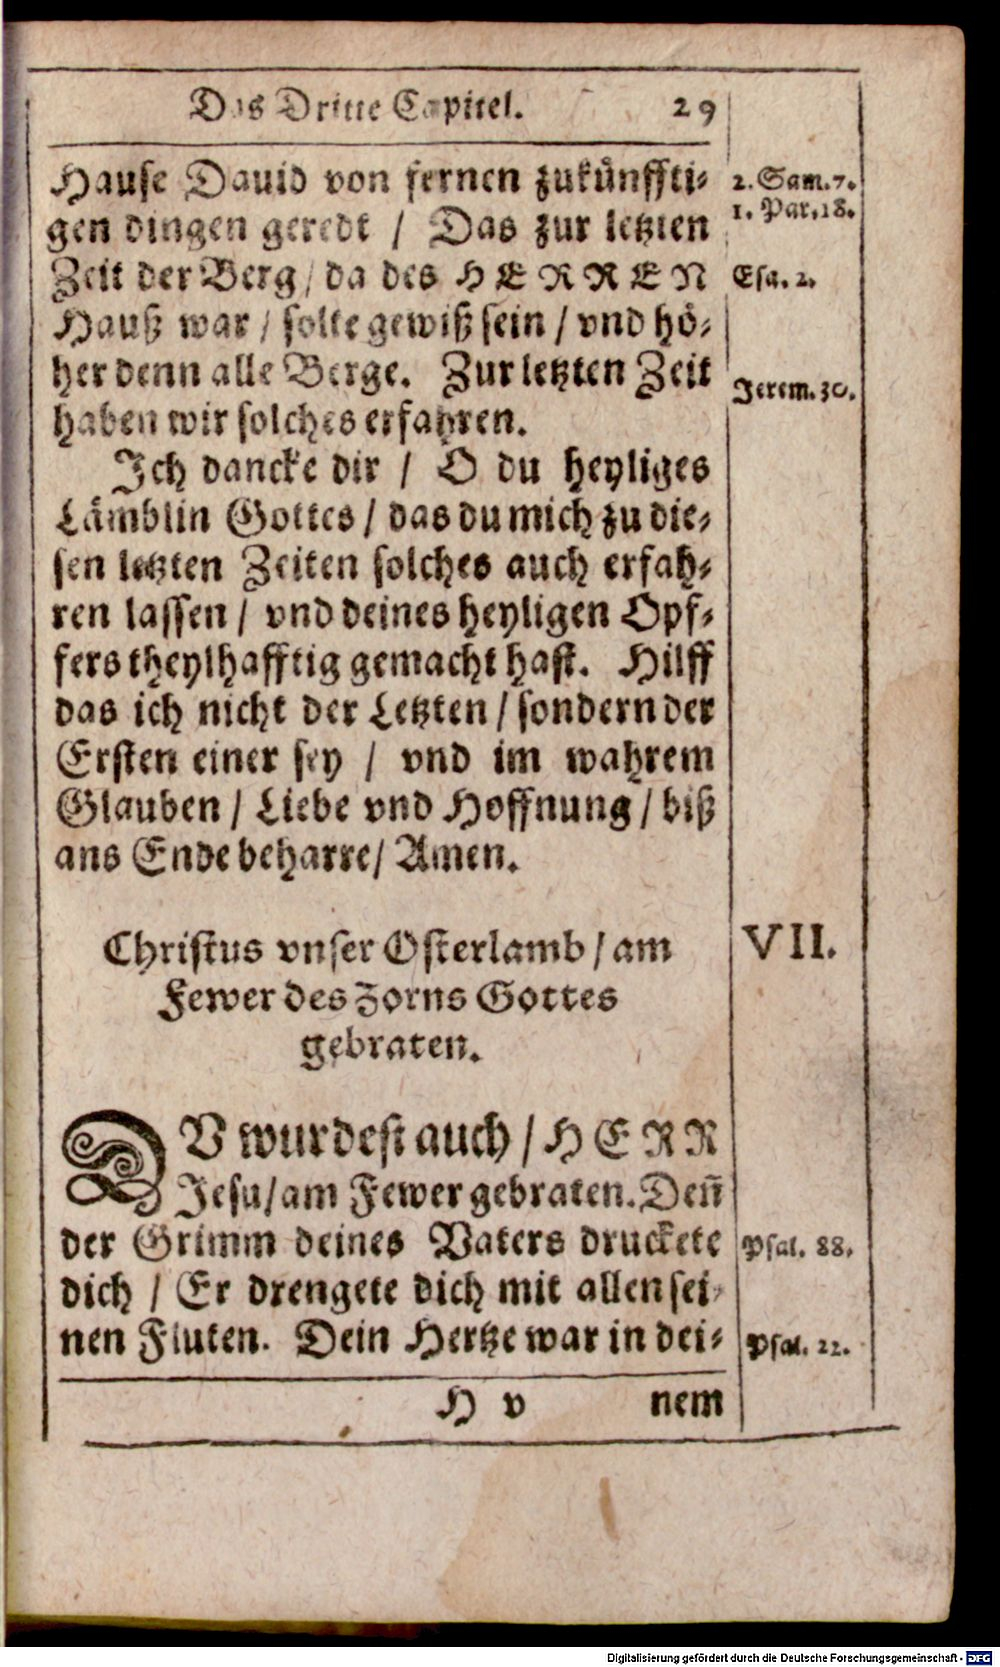 Das Dritte Capitel. 29
Hause Dauid von fernen zukünffti-
2. Sam. 7.
gen dingen geredt / Das zur letzten
1. Par. 18.
Zeit der Berg / da des HERREN
Esa. 2.
Hauß war / solte gewiß sein / vnd hö-
her denn alle Berge. Zur letzten Zeit
Jerem. 30.
haben wir solches erfahren.
Ich dancke dir / O du heyliges
Lämblin Gottes / das du mich zu die-
sen letzten Zeiten solches auch erfah-
ren lassen / vnd deines heyligen Opf-
fers theylhafftig gemacht hast. Hilff
das ich nicht der Letzten / sondern der
Ersten einer sey / vnd im wahrem
Glauben / Liebe vnd Hoffnung / biß
ans Ende beharre / Amen.
Christus vnser Osterlamb / am
VII.
Fewer des Zorns Gottes
gebraten.
DV wurdest auch / HERR
Jesu / am Fewer gebraten. Deñ
der Grimm deines Vaters druckete
Psal. 88.
dich / Er drengete dich mit allen sei-
nen Fluten. Dein Hertze war in dei-
Psal. 22.
H v nem
Digitalisierung gefördert durch die Deutsche Forschungsgemeinschaft - DFG